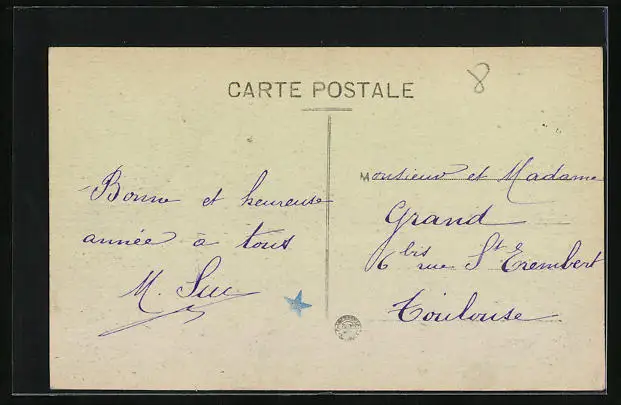 CARTE POSTALE
8
Bonne et heureuse
année à tous
M. Suc
Monsieur et Madame
Grand
6 bis rue Ste Erembert
Toulouse